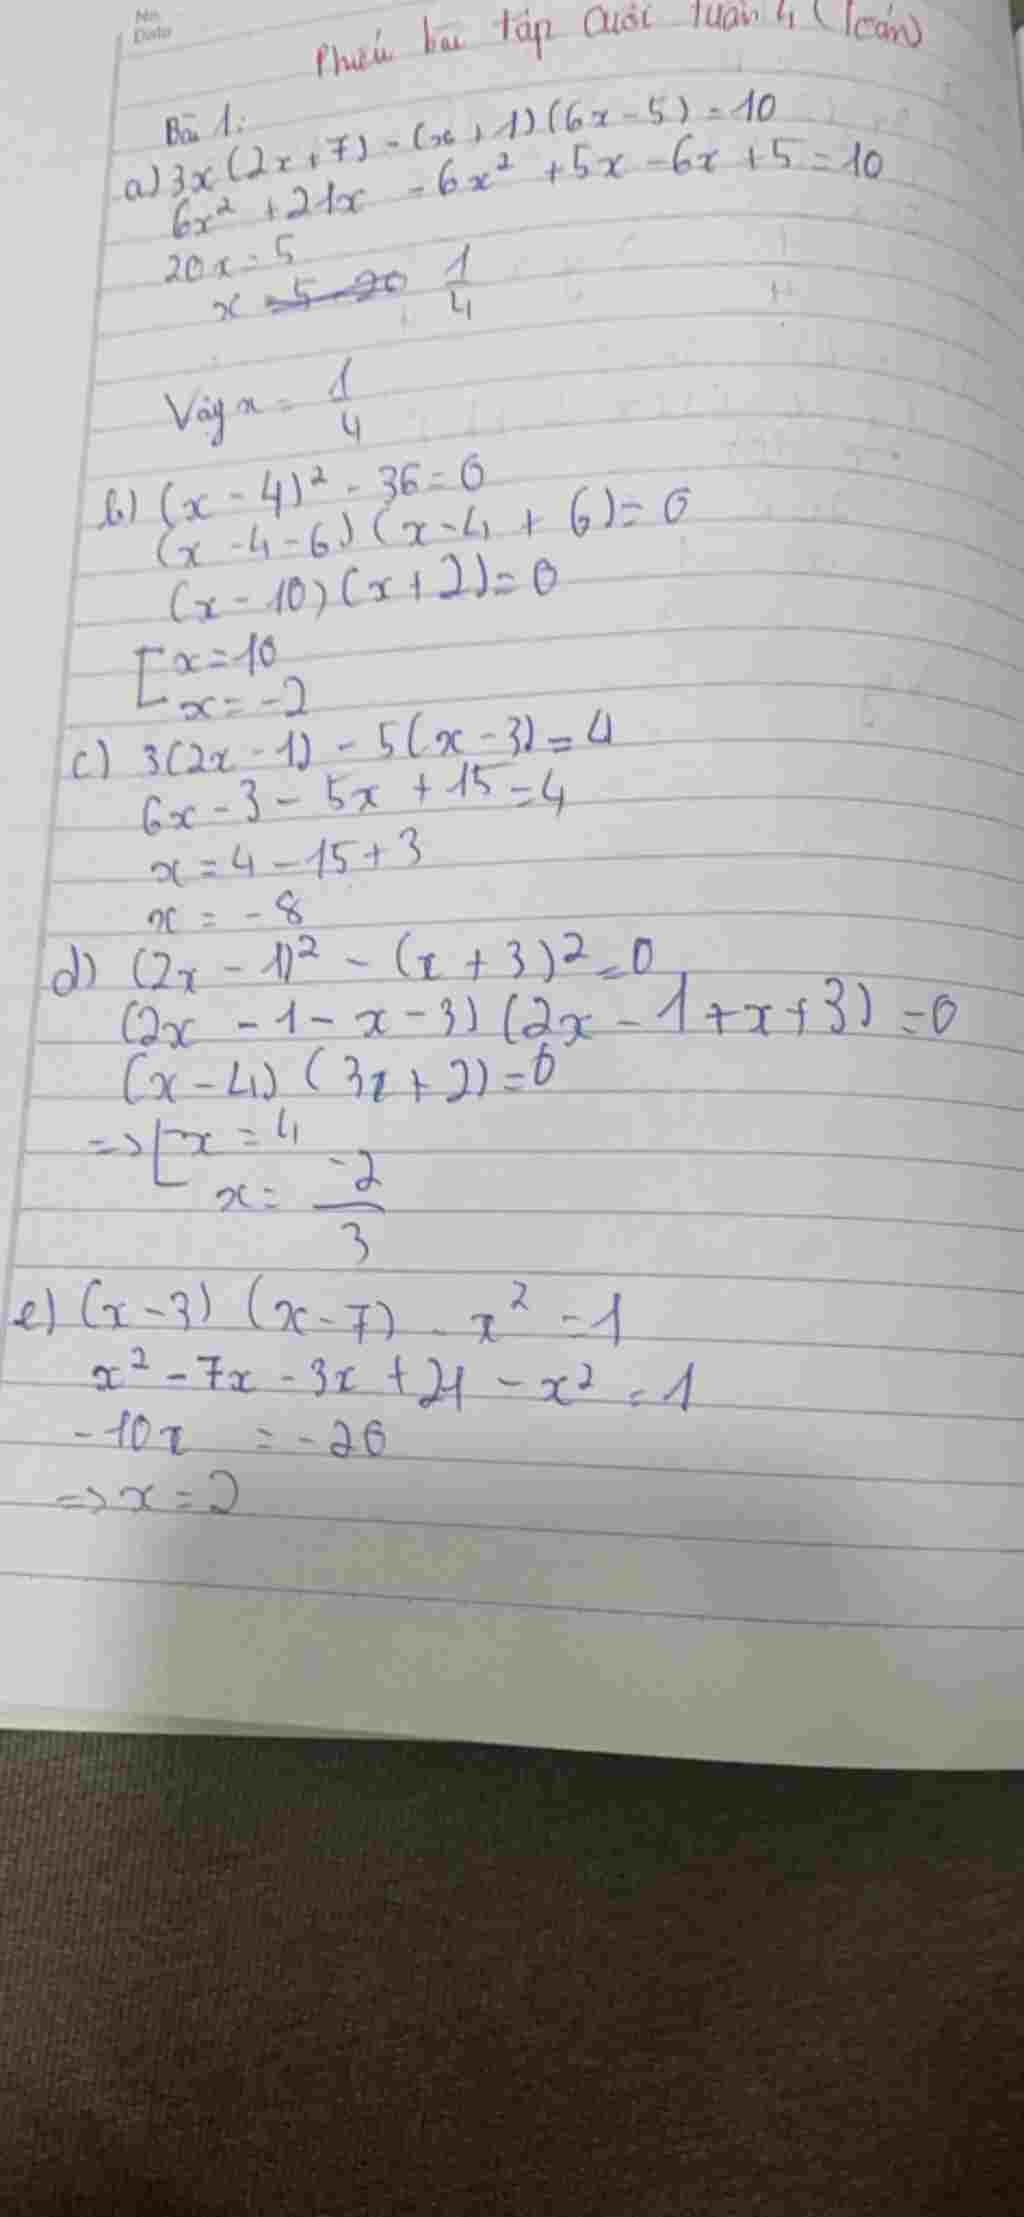 No.
Date
Phiếu bài tập cuối tuần 4 (Toán)
Bài 1:
a) 3x(2x+7) - (x+1)(6x-5) = 10
6x² + 21x - 6x² + 5x - 6x + 5 = 10
20x = 5
x = 1/4
Vậy x = 1/4
b) (x - 4)² - 36 = 0
(x - 4 - 6)(x - 4 + 6) = 0
(x - 10)(x + 2) = 0
[ x = 10
x = -2
c) 3(2x - 1) - 5(x - 3) = 4
6x - 3 - 5x + 15 = 4
x = 4 - 15 + 3
x = - 8
d) (2x - 1)² - (x + 3)² = 0
(2x - 1 - x - 3)(2x - 1 + x + 3) = 0
(x - 4)(3x + 2) = 0
=> [ x = 4
x = -2/3
e) (x - 3)(x - 7) - x² = 1
x² - 7x - 3x + 21 - x² = 1
- 10x = - 20
=> x = 2